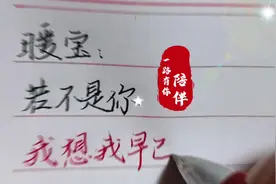 暖宝：
若不是你
我想我早已
一路有你
陪伴